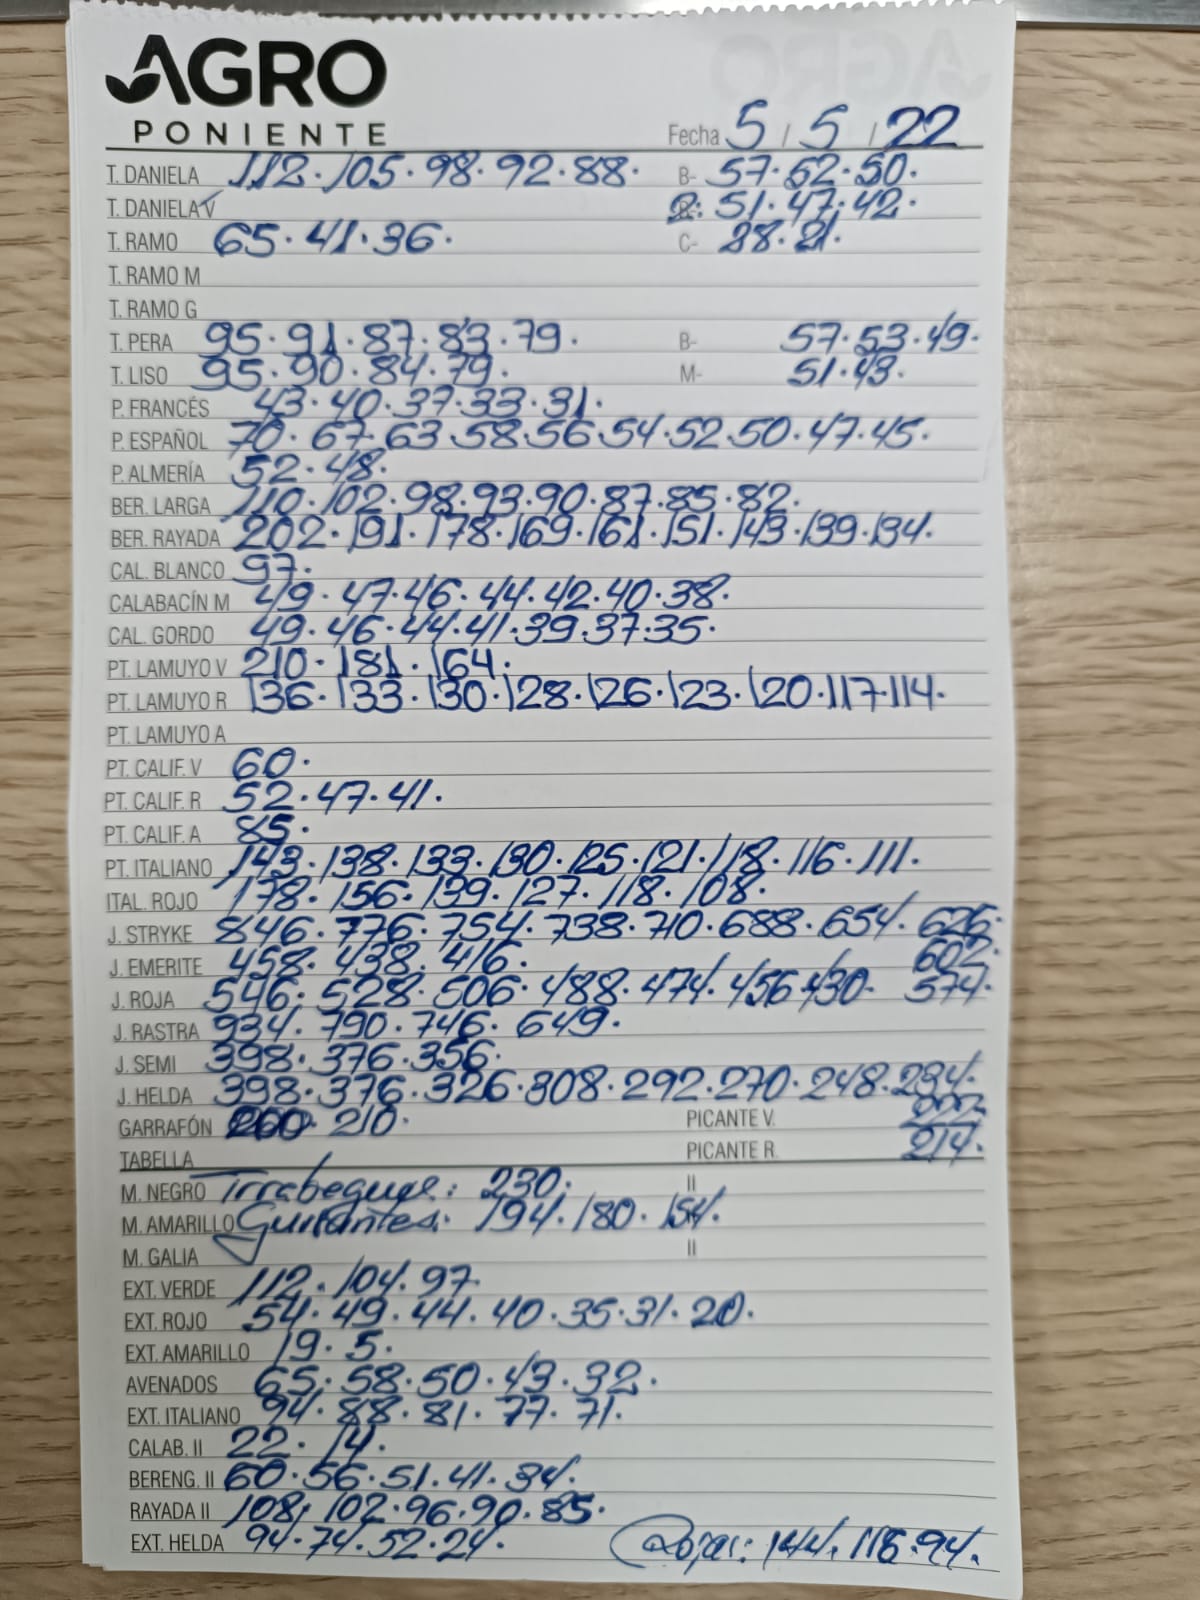 AGRO
PONIENTE
Fecha 5 / 5 / 22
T. DANIELA 112. 105. 98. 92. 88. B- 57. 52. 50.
T. DANIELA V 2: 51. 47. 42.
T. RAMO 65. 41. 36. C- 28. 21.
T. RAMO M
T. RAMO G
T. PERA 95. 91. 87. 83. 79. B- 57. 53. 49.
T. LISO 95. 90. 84. 79. M- 51. 43.
P. FRANCÉS 43. 40. 37. 33. 31.
P. ESPAÑOL 70. 67. 63. 58. 56. 54. 52. 50. 47. 45.
P. ALMERÍA 52. 48.
BER. LARGA 110. 102. 98. 93. 90. 87. 85. 82.
BER. RAYADA 202. 191. 178. 169. 161. 151. 143. 139. 134.
CAL. BLANCO 97.
CALABACÍN M 49. 47. 46. 44. 42. 40. 38.
CAL. GORDO 49. 46. 44. 41. 39. 37. 35.
PT. LAMUYO V 210. 181. 164.
PT. LAMUYO R 136. 133. 130. 128. 126. 123. 120. 117. 114.
PT. LAMUYO A
PT. CALIF. V 60.
PT. CALIF. R 52. 47. 41.
PT. CALIF. A 85.
PT. ITALIANO 143. 138. 133. 130. 125. 121. 118. 116. 111.
ITAL. ROJO 178. 156. 139. 127. 118. 108.
J. STRYKE 846. 776. 754. 738. 710. 688. 654. 626.
J. EMERITE 458. 438. 416. 602.
J. ROJA 546. 528. 506. 488. 474. 456. 430. 574.
J. RASTRA 934. 790. 746. 649.
J. SEMI 398. 376. 356.
J. HELDA 398. 376. 326. 308. 292. 270. 248. 234.
GARRAFÓN 260. 210. PICANTE V. 222.
TABELLA PICANTE R. 214.
M. NEGRO 230. II
M. AMARILLO 194. 180. 154.
M. GALIA II
EXT. VERDE 112. 104. 97.
EXT. ROJO 54. 49. 44. 40. 35. 31. 20.
EXT. AMARILLO 19. 5.
AVENADOS 65. 58. 50. 43. 32.
EXT. ITALIANO 94. 88. 81. 77. 71.
CALAB. II 22. 14.
BERENG. II 60. 56. 51. 41. 34.
RAYADA II 108. 102. 96. 90. 85.
EXT. HELDA 94. 74. 52. 24. Rojas: 144. 116. 94.